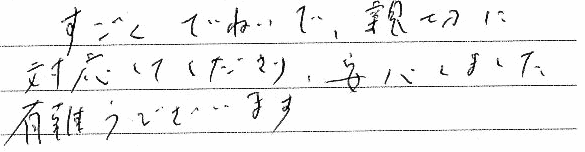 すごくていねいで、親切に
対応してくださり、安心しました
有難うございます